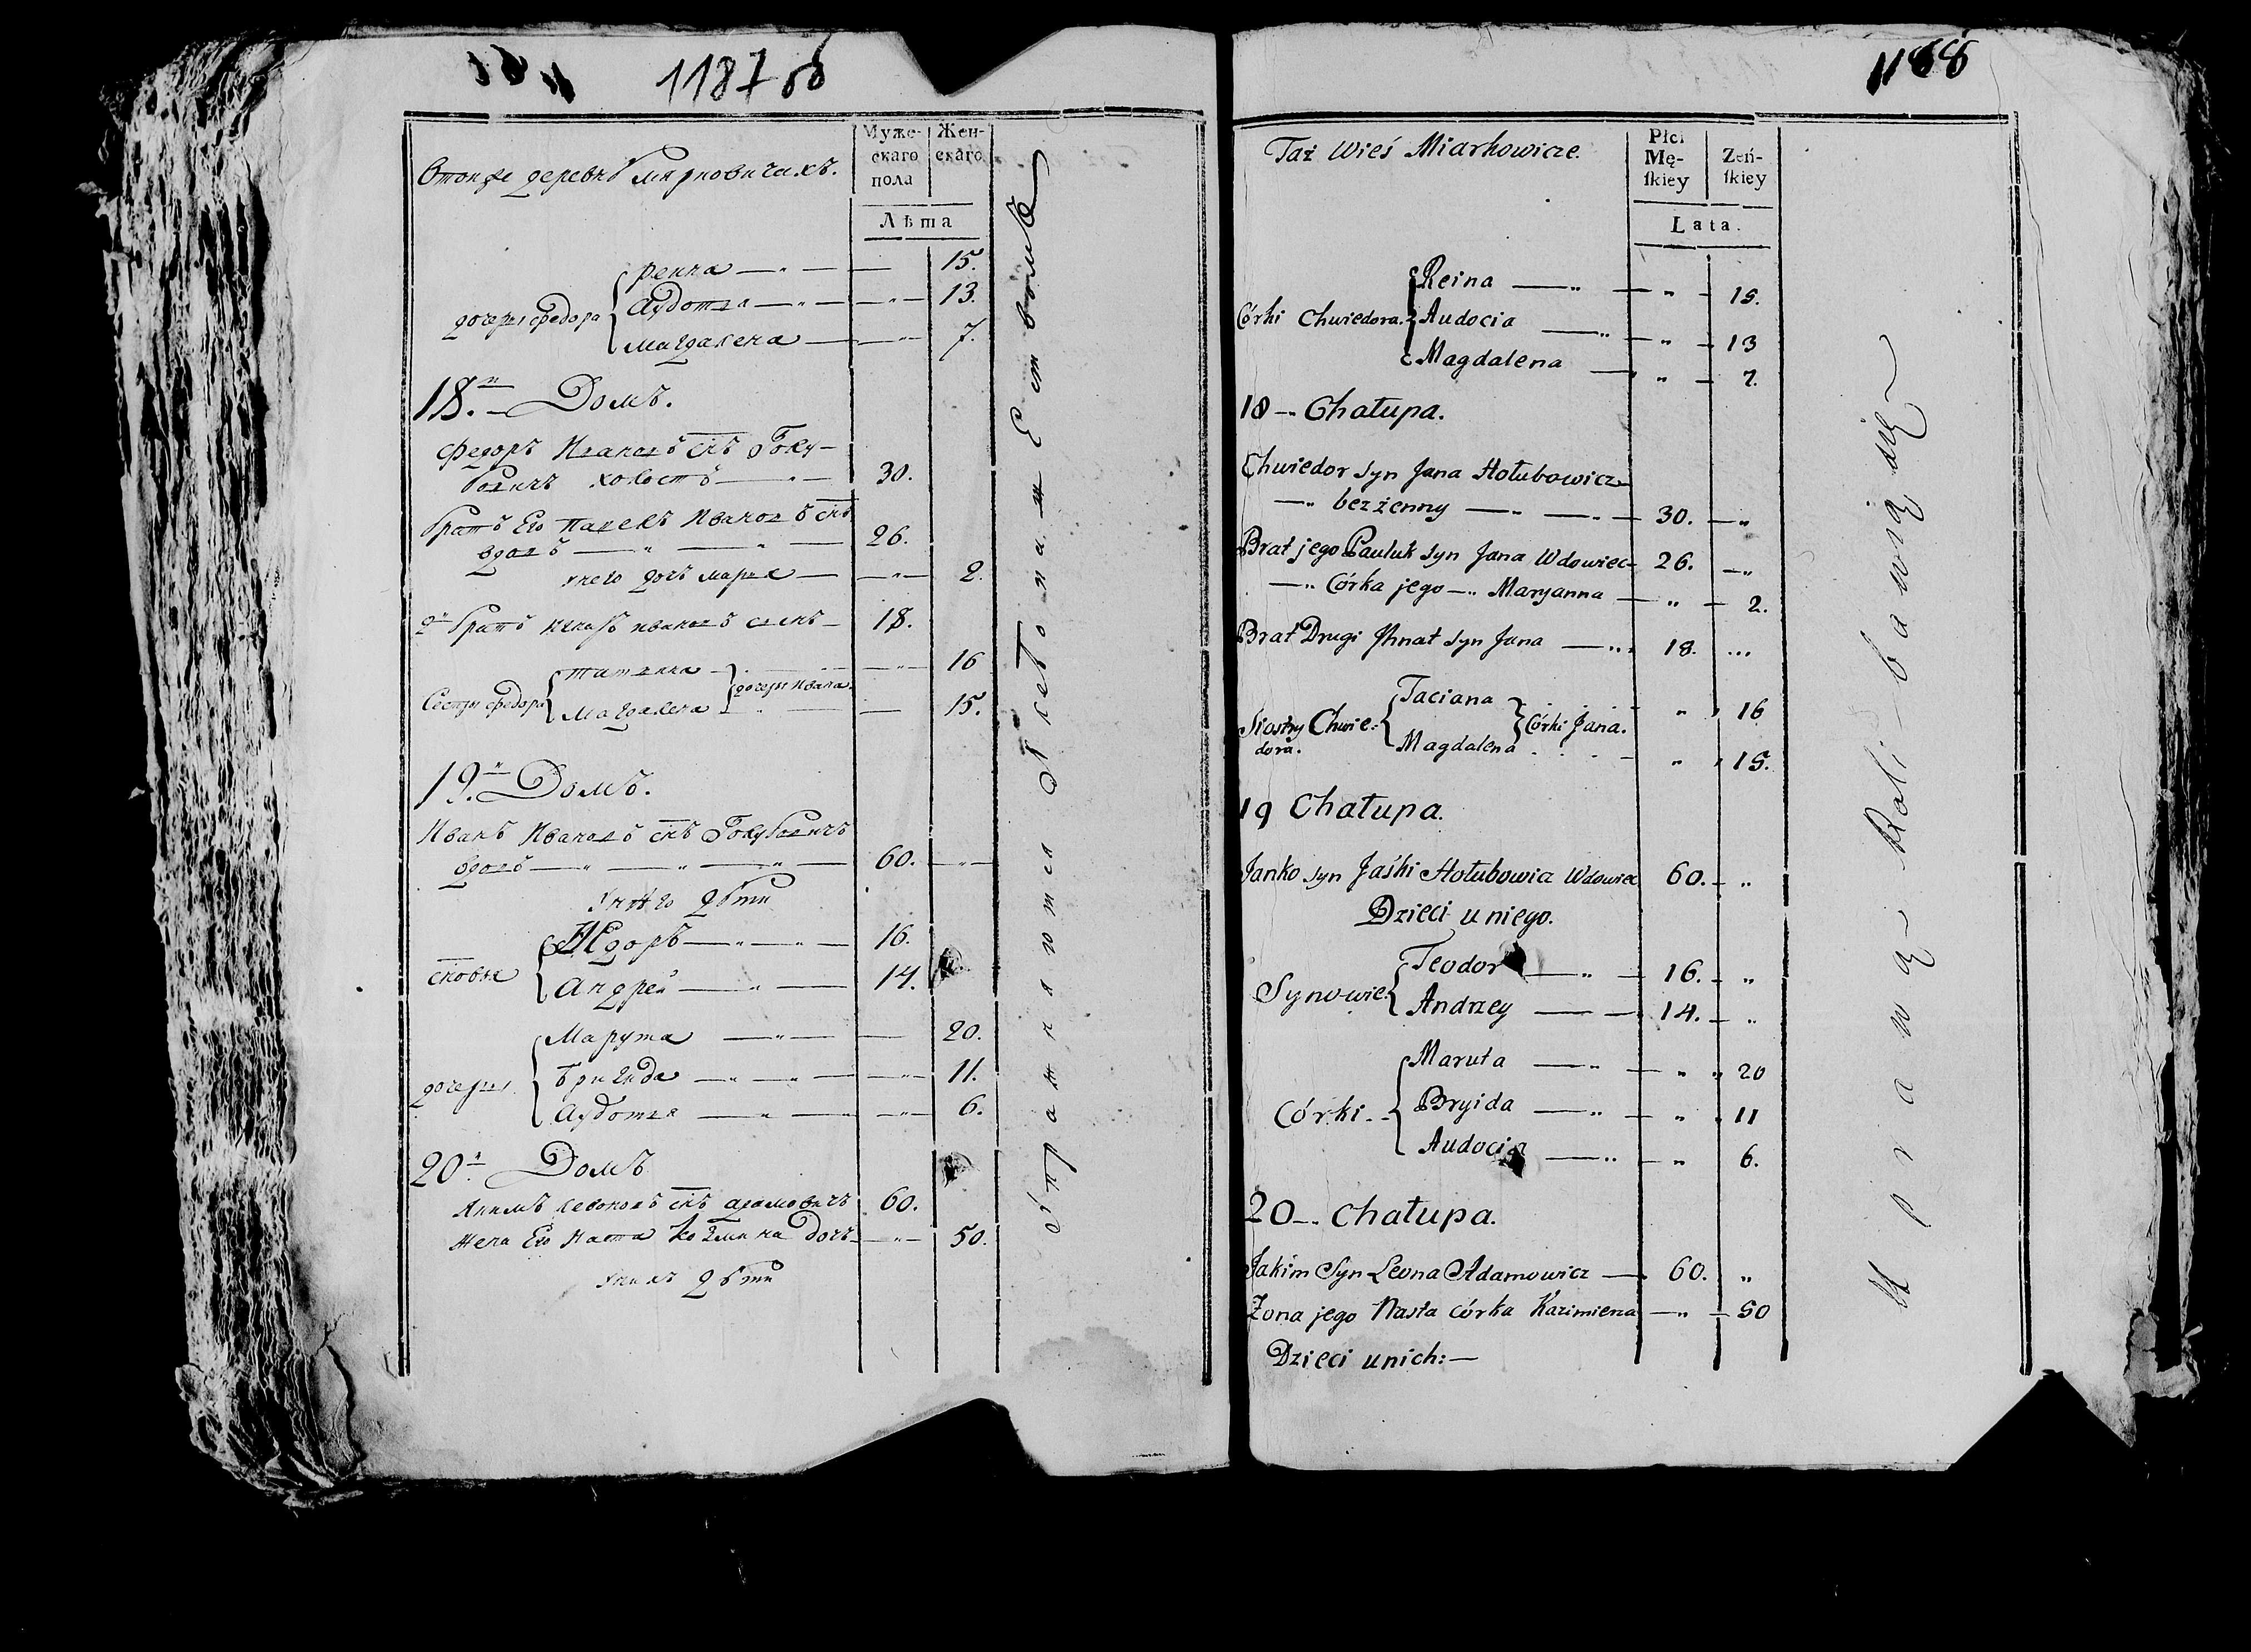 1187 об
Муже-
скаго
пола
Жен-
скаго
Лѣта
Втойже деревнѣ мирковичахъ.
дочери федора
Реина — 15.
Аудотья — 13.
Магдалена — 7.
18.й Домъ.
Федоръ Ивановъ снъ Голу-
бовичъ холостъ — 30.
братъ Его Павелъ Ивановъ снъ
вдовъ — 26.
унего дочь марья — 2.
2й братъ игнатъ ивановъ сынъ — 18.
Сестры федора
татьяна — 16
Магдалена — 15.
дочери ивана
19.й Домъ.
Иванъ Ивановъ снъ Голубовичъ
вдовъ — 60.
унего дѣти
сновья
Федоръ — 16.
Андрей — 14.
дочери
Марута — 20.
Бригида — 11.
Аудотья — 6.
20й Домъ
Якимъ Левоновъ снъ адамовичъ 60.
Жена Его Наста дочь — 50.
унихъ дѣти
Упражняются Хлебопашеством
1188
Taż Wieś Miarkowicze.
Płci
Mę-
skiey
Żeń-
skiey
Lata.
Córki Chwiedora.
Reina — 15.
Audocia — 13
Magdalena — 7.
18 — Chałupa.
Chwiedor syn Jana Hołubowicz
bezżenny — 30.
Brat jego Pauluk syn Jana Wdowiec 26.
Córka jego — Maryanna — 2.
Brat Drugi Jhnat syn Jana — 18.
Siostry Chwie:
dora.
Taciana — 16
Magdalena — 15.
Córki Jana.
19 Chałupa.
Janko syn Jaśki Hołubowicz Wdowiec 60.
Dzieci u niego.
Synowie.
Teodor — 16.
Andrzey — 14.
Córki
Maruta — 20
Bryida — 11
Audocia — 6.
20 — Chałupa.
Jakim Syn Leona Adamowicz — 60.
Żona jego Nasta córka Kazimierza — 50
Dzieci unich:—
Uprawą Roli bawią się